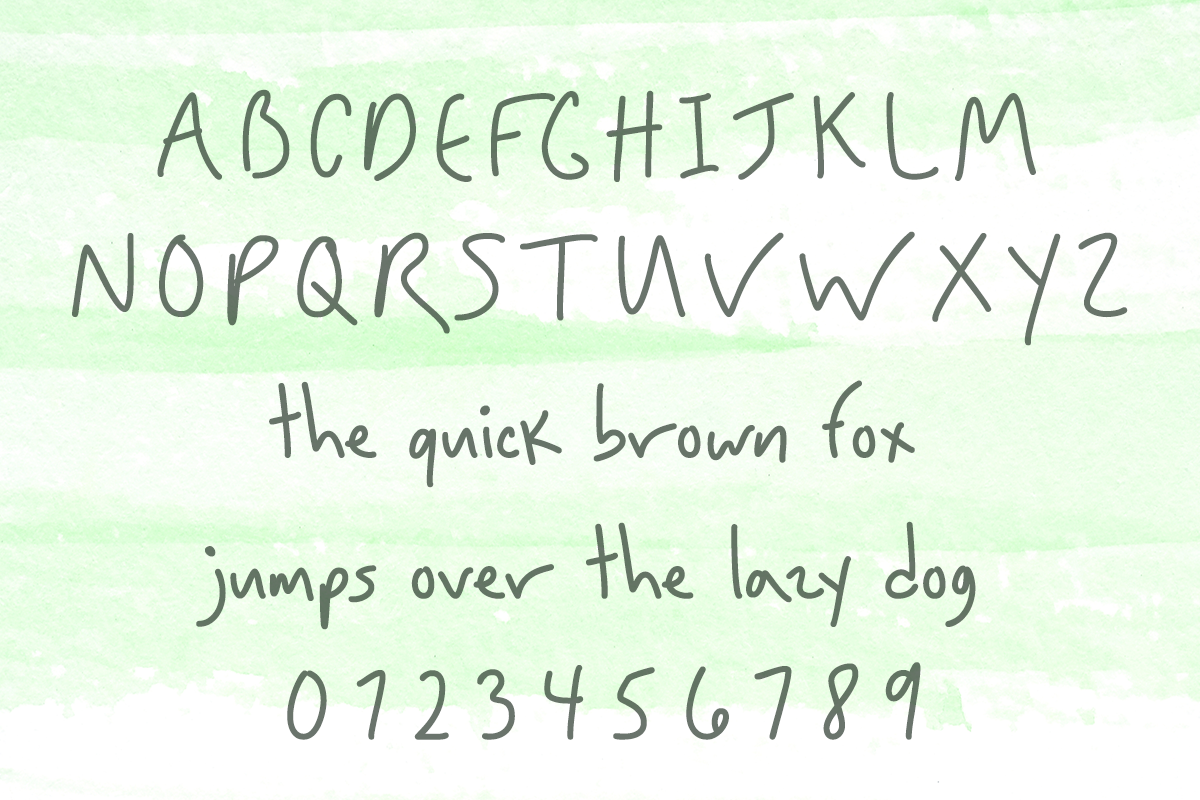 ABCDEFGHIJKLM
NOPQRSTUVWXYZ
the quick brown fox
jumps over the lazy dog
0123456789